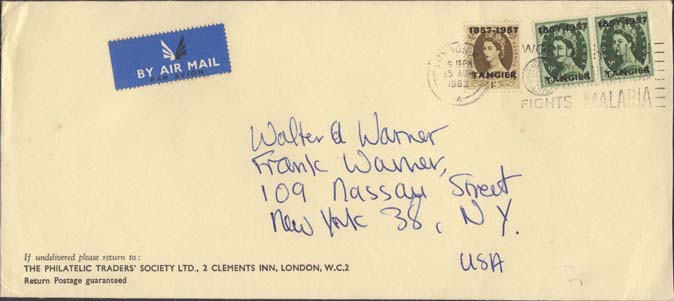 BY AIR MAIL
PAR AVION
1857-1957
TANGIER
1857-1957
TANGIER
1857-1957
TANGIER
LONDON
5 15PM
15 AUG
1962
A
WORLD
FIGHTS MALARIA
Walter A Warner
Frank Warner,
109 Nassau Street
New York 38, N.Y.
USA
If undelivered please return to:
THE PHILATELIC TRADERS' SOCIETY LTD., 2 CLEMENTS INN, LONDON, W.C.2
Return Postage guaranteed